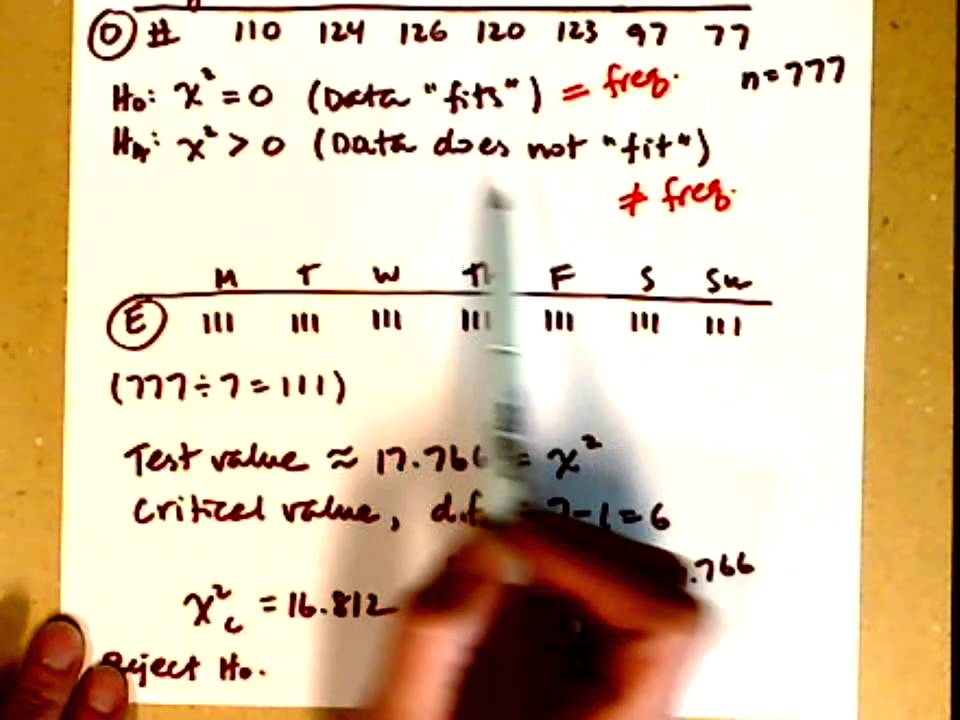 O # 110 124 126 120 123 97 77
n=777
Ho: x² = 0 (Data "fits") = freq.
HA: x² > 0 (Data does not "fit")
≠ freq.
M T W Th F S Su
E 111 111 111 111 111 111 111
(777÷7=111)
Test value ≈ 17.766 = x²
Critical value, d.f. = 7-1=6
.766
x²c = 16.812
Reject Ho.